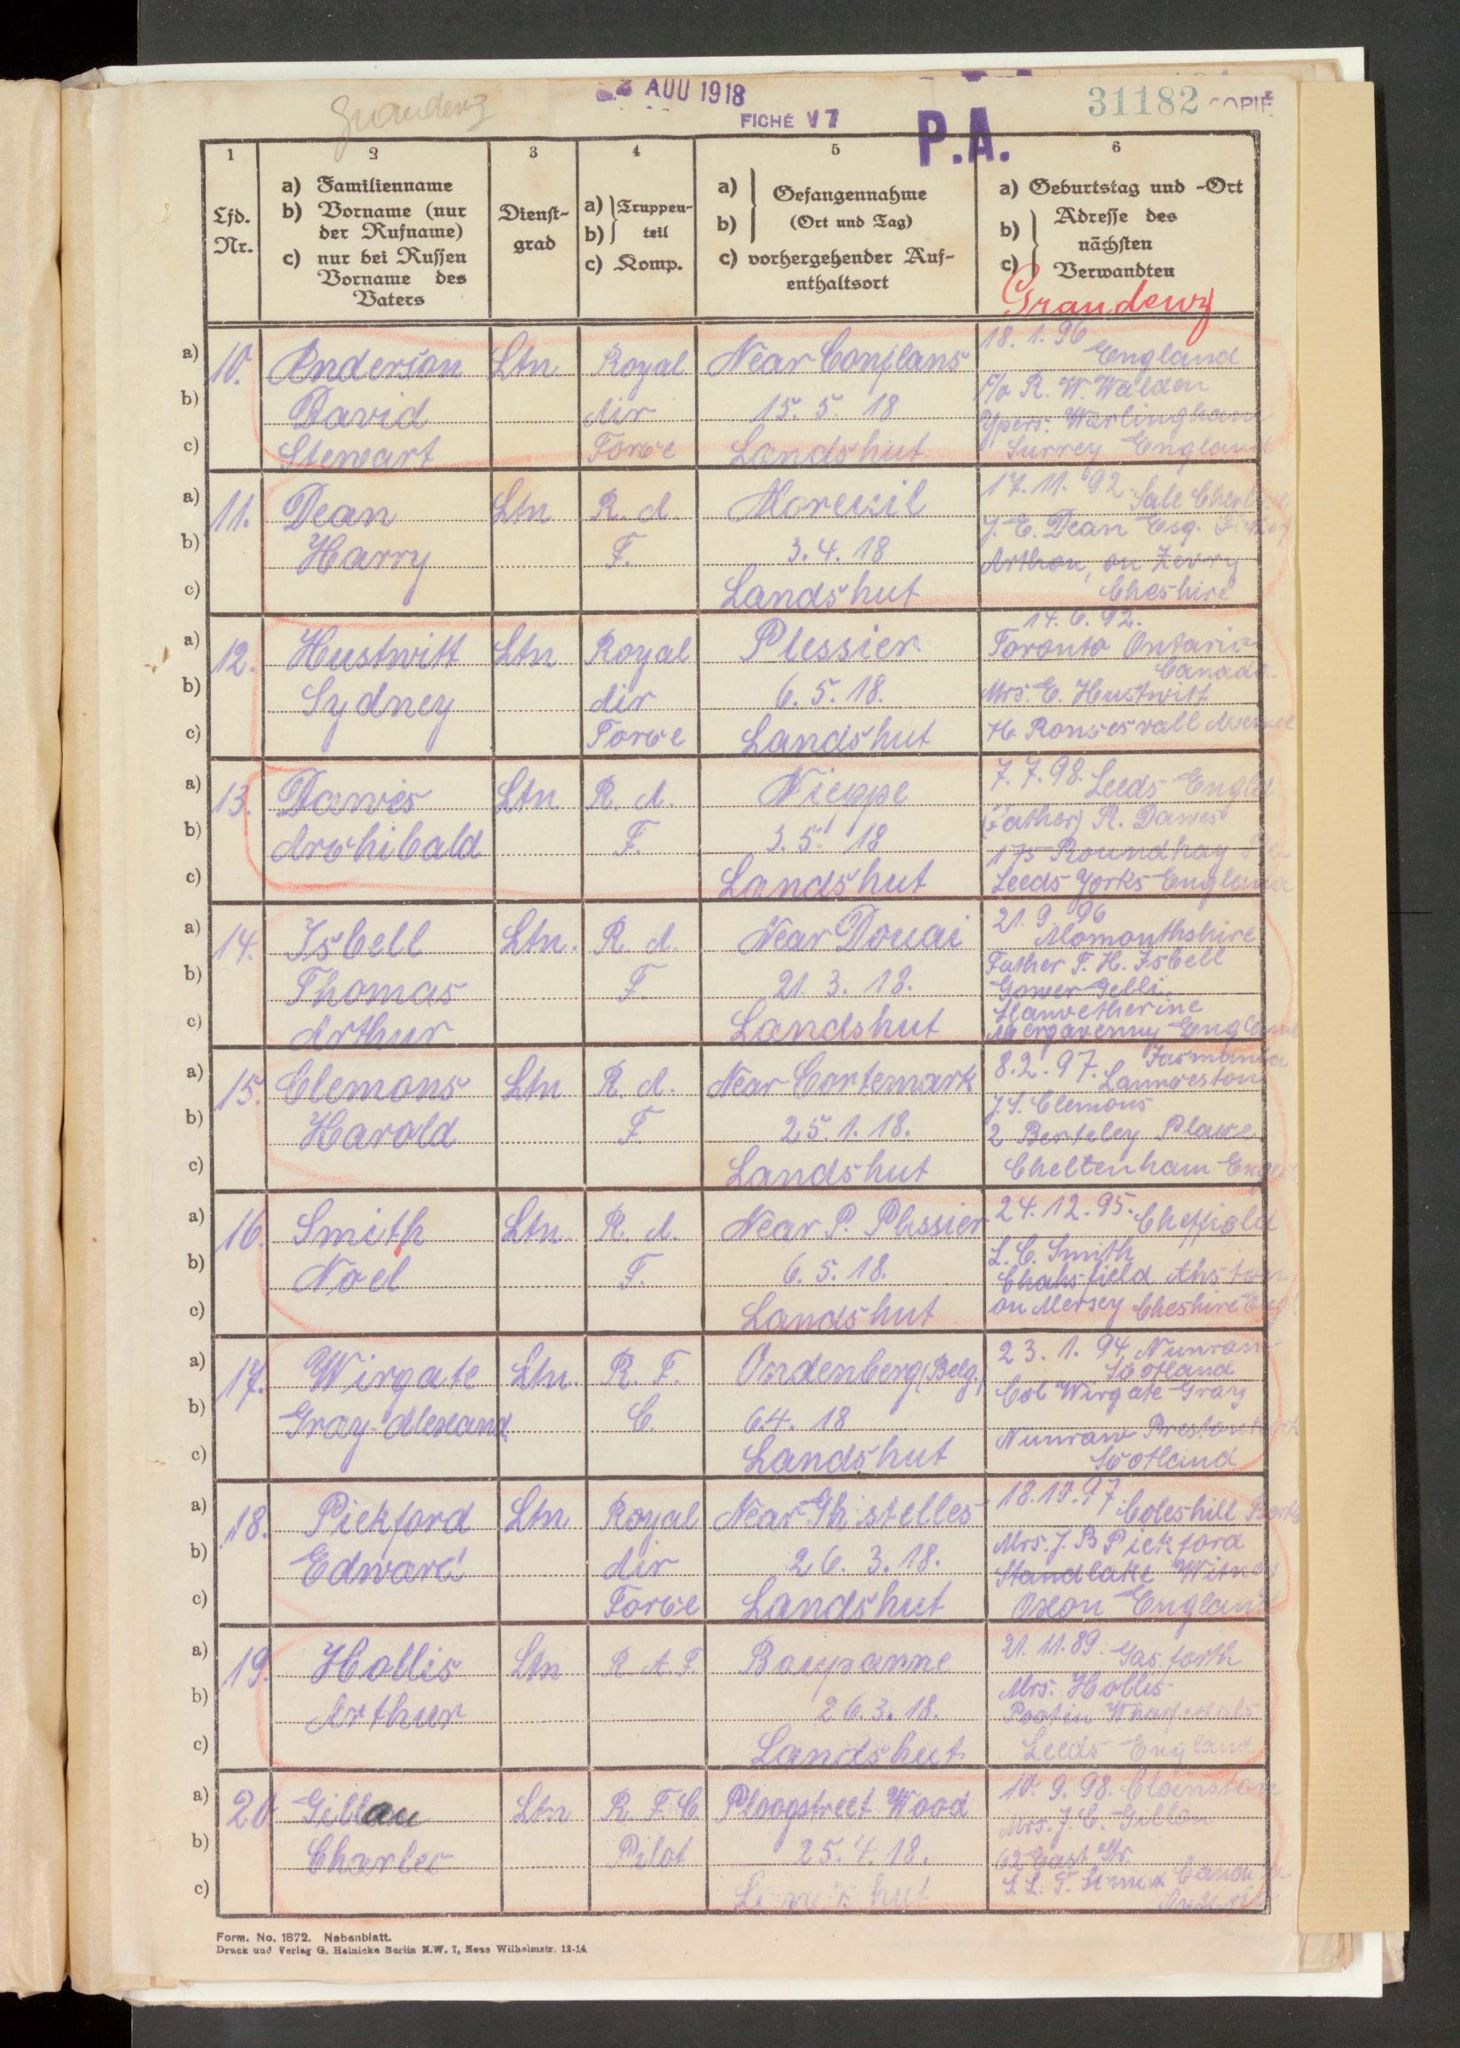 Graudenz
AOU 1918
FICHÉ V7
P.A.
31182
COPIÉ
1
2
3
4
5
6
Lfd. Nr.
a) Familienname
b) Vorname (nur der Rufname)
c) nur bei Russen Vorname des Vaters
Dienst-
grad
a) Truppen-
b) teil
c) Komp.
a) Gefangennahme
b) (Ort und Tag)
c) vorhergehender Auf-
enthaltsort
a) Geburtstag und -Ort
b) Adresse des
nächsten
c) Verwandten
Graudenz
a) b) c)
10. Anderson David Stewart
Ltn
Royal Air Force
Near Conflans
15. 5. 18
Landshut
18. 1. 96
England
c/o R. W. Walden
Ypers. Warlingham
Surrey England
a) b) c)
11. Dean Harry
Ltn
R. A. F.
Moreuil
3. 4. 18
Landshut
17. 11. 92 Sale
J. E. Dean Esq.
Cheshire
a) b) c)
12. Hustwitt Sydney
Ltn
Royal Air Force
Plessier
6. 5. 18.
Landshut
14. 6. 92.
Toronto Ontario
Canada
Mrs. E. Hustwitt
H. Roncesvall
a) b) c)
13. Dawes Archibald
Ltn
R. A. F.
Nieppe
3. 5. 18
Landshut
7. 7. 98. Leeds
(Father) R. Dawes
175 Roundhay
Leeds Yorks England
a) b) c)
14. Isbell Thomas Arthur
Ltn.
R. A. F.
Near Douai
21. 3. 18.
Landshut
21. 9. 96
Momouthshire
Father F. H. Isbell
Gower Gelli
England
a) b) c)
15. Clemons Harold
Ltn
R. A. F.
Near Cortemark
25. 1. 18.
Landshut
8. 2. 97. Tasmania
Launceston
J. S. Clemons
2 Berteley Place
Cheltenham
a) b) c)
16. Smith Noel
Ltn.
R. A. F.
Near P. Plessier
6. 5. 18.
Landshut
24. 12. 95. Cheffield
L. C. Smith
on Mersey Cheshire
a) b) c)
17. Wirgate Gray-Alexand
Ltn.
R. F. C.
Ondenberg (Belg.)
6.4. 18
Landshut
23. 1. 94. Nunraw
Scotland
Col Wirgate Gray
Nunraw Prestonkirk
Scotland
a) b) c)
18. Pickford Edward
Ltn
Royal Air Force
Near Ghistelles
26. 3. 18.
Landshut
Coleshill
Mrs. J. B Pickford
Standlake Witney
Oxon England
a) b) c)
19. Hollis Arthur
Ltn
R A. F.
Baupanne
26. 3. 18.
Landshut
21. 11. 89. Gasforth
Mrs. Hollis
Leeds England
a) b) c)
20 Gillan Charlec
Ltn
R. F. C Pilot
Ploogstreet Wood
25. 4. 18.
10. 9. 98.
Mrs. J. C. Gillan
62 East Str.
Form. No. 1872. Nebenblatt.
Druck und Verlag G. Heinicke Berlin N.W. 7, Neue Wilhelmstr. 12-14